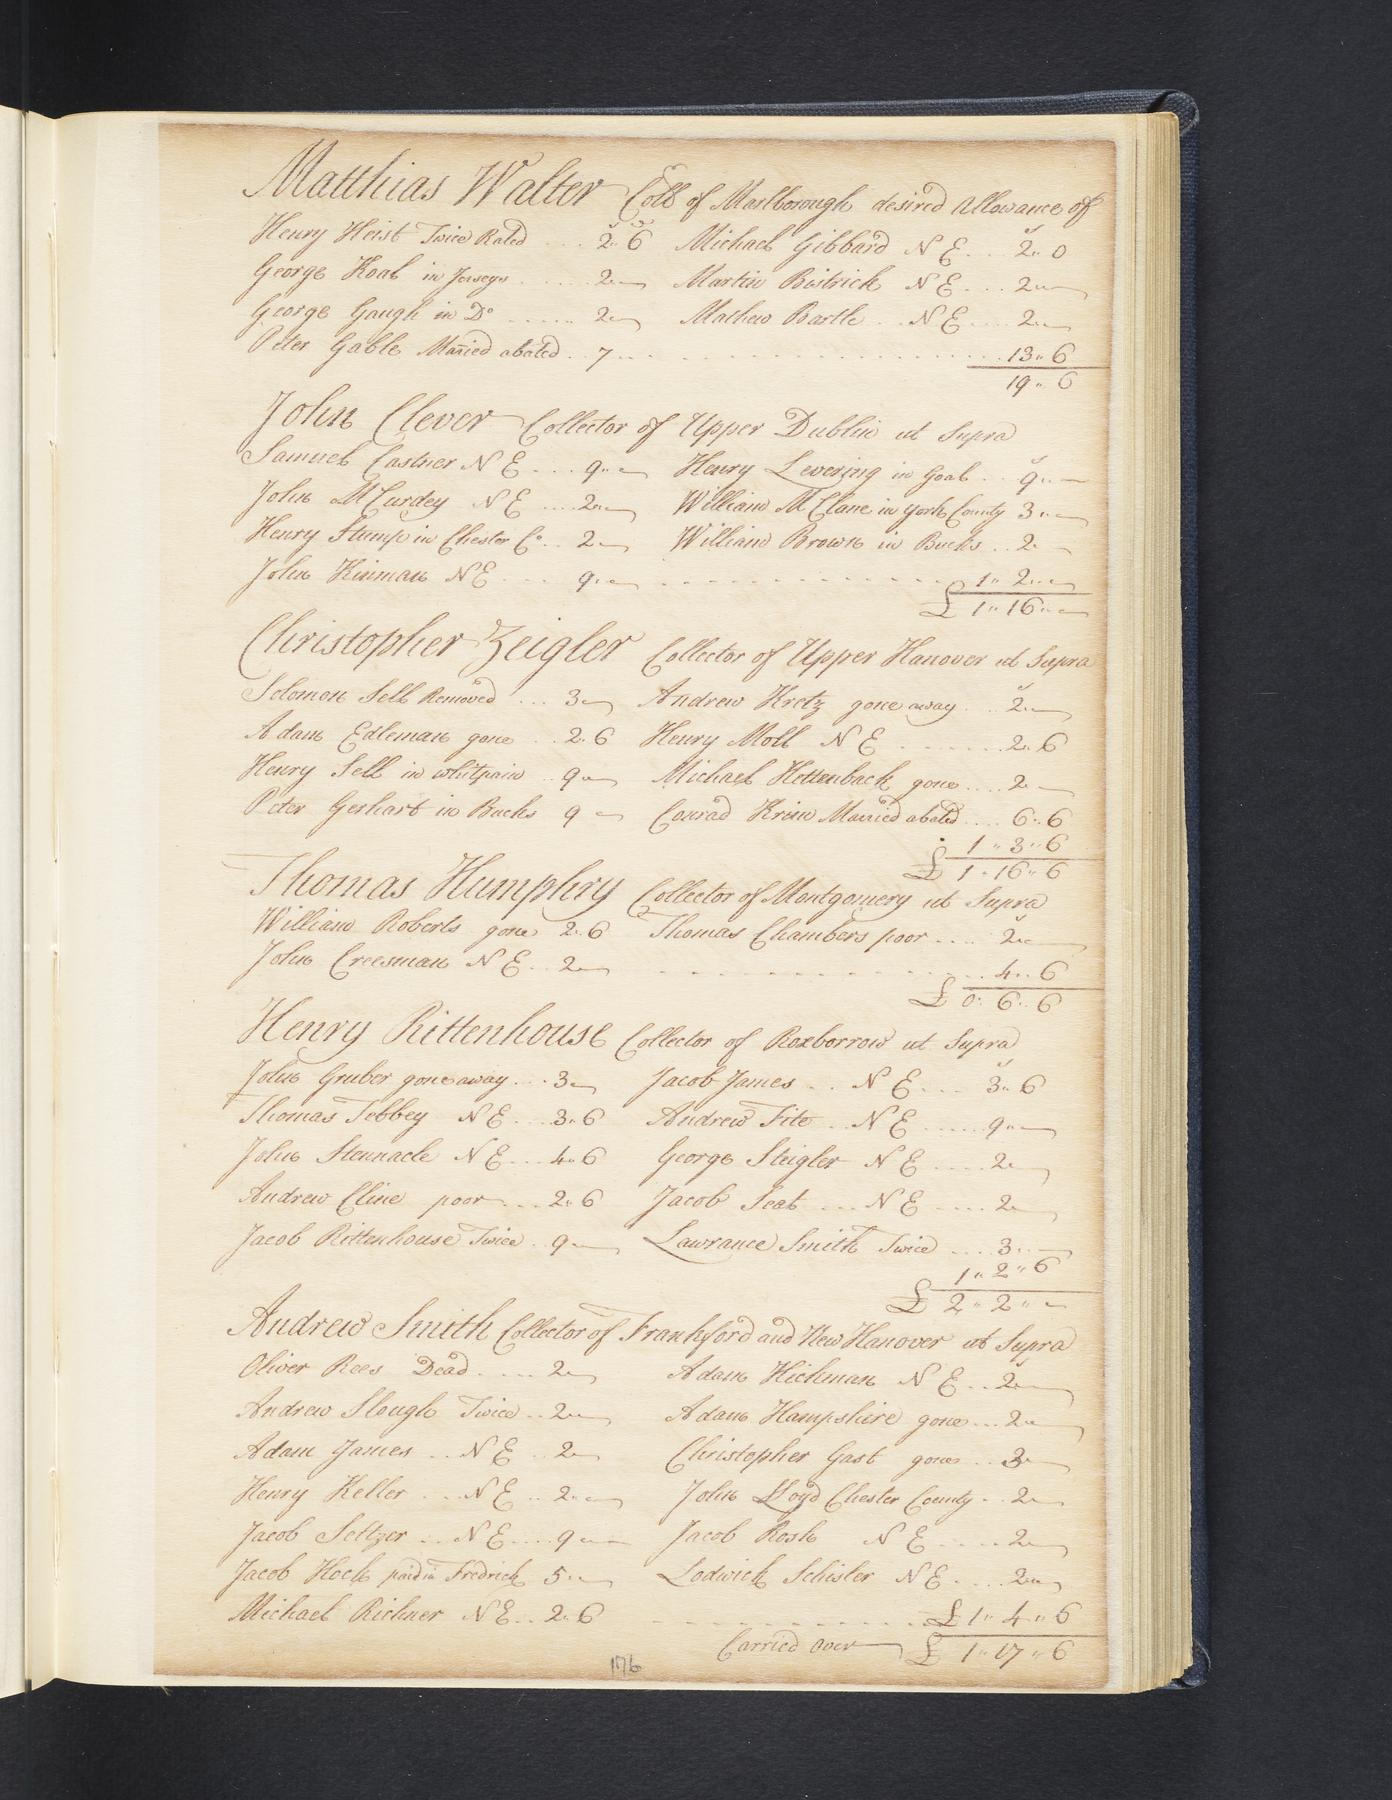 Matthias Walter Coll of Marlborough desired allowance of
Henry Heist Twice Rated .... 2" 6 Michael Gibbard N E ... 2" 0
George Koal in Jerseys ...... 2" — Martin Bistrick N E .... 2" —
George Gaugh in Do ...... 2" — Mathew Bartle .. N E .... 2" —
Peter Gable Married abated .. 7 ... 13" 6
19" 6
John Clever Collector of Upper Dublin ut Supra
Samuel Castner N E .... 9" — Henry Levering in Goal .. 9" —
John McCurdey N E .... 2" — William McClane in York County 3" —
Henry Stump in Chester Co .. 2 — William Brown in Bucks .. 2 —
John Kinman N E .... 9" — 1" 2" —
£ 1" 16" —
Christopher Zeigler Collector of Upper Hanover ut Supra
Solomon Sell Removed ... 3 — Andrew Kretz gone away .. 2" —
Adam Edleman gone .. 2" 6 Henry Moll N E ....... 2" 6
Henry Sell in whitpain .. 9 — Michael Hettenback gone .... 2 —
Peter Gerhart in Bucks 9 — Conrad Krein Married abated .... 6" 6
1" 3" 6
£ 1" 16" 6
Thomas Humphry Collector of Montgomery ut Supra
William Roberts gone 2" 6 Thomas Chambers poor .... 2" —
John Creesman N E .. 2 — .. 4" 6
£ 0" 6" 6
Henry Rittenhouse Collector of Roxborrow ut Supra
John Gruber gone away ... 3 — Jacob James .. N E .... 3" 6
Thomas Tebbey N E .... 3" 6 Andrew Fite .. N E ..... 9" —
John Stennacle N E .... 4" 6 George Steigler N E .... 2 —
Andrew Cline poor .... 2" 6 Jacob Seat .... N E .... 2 —
Jacob Rittenhouse Twice .. 9 — Lawrance Smith Twice .... 3" —
1" 2" 6
£ 2" 2" —
Andrew Smith Collector of Frankford and New Hanover ut Supra
Oliver Rees Dead ..... 2 — Adam Hickman N E .. 2 —
Andrew Slough Twice .. 2 — Adam Hampshire gone ... 2 —
Adam James .. N E .. 2 — Christopher Gast gone .. 3 —
Henry Keller ... N E .. 2" — John Lloyd Chester County .. 2 —
Jacob Seltzer ... N E .... 9 — Jacob Rosh N E ..... 2 —
Jacob Hock paid in Fredrick 5" — Lodwick Schisler N E .... 2 —
Michael Richner N E .. 2" 6 £ 1" 4" 6
Carried over £ 1" 17" 6
176